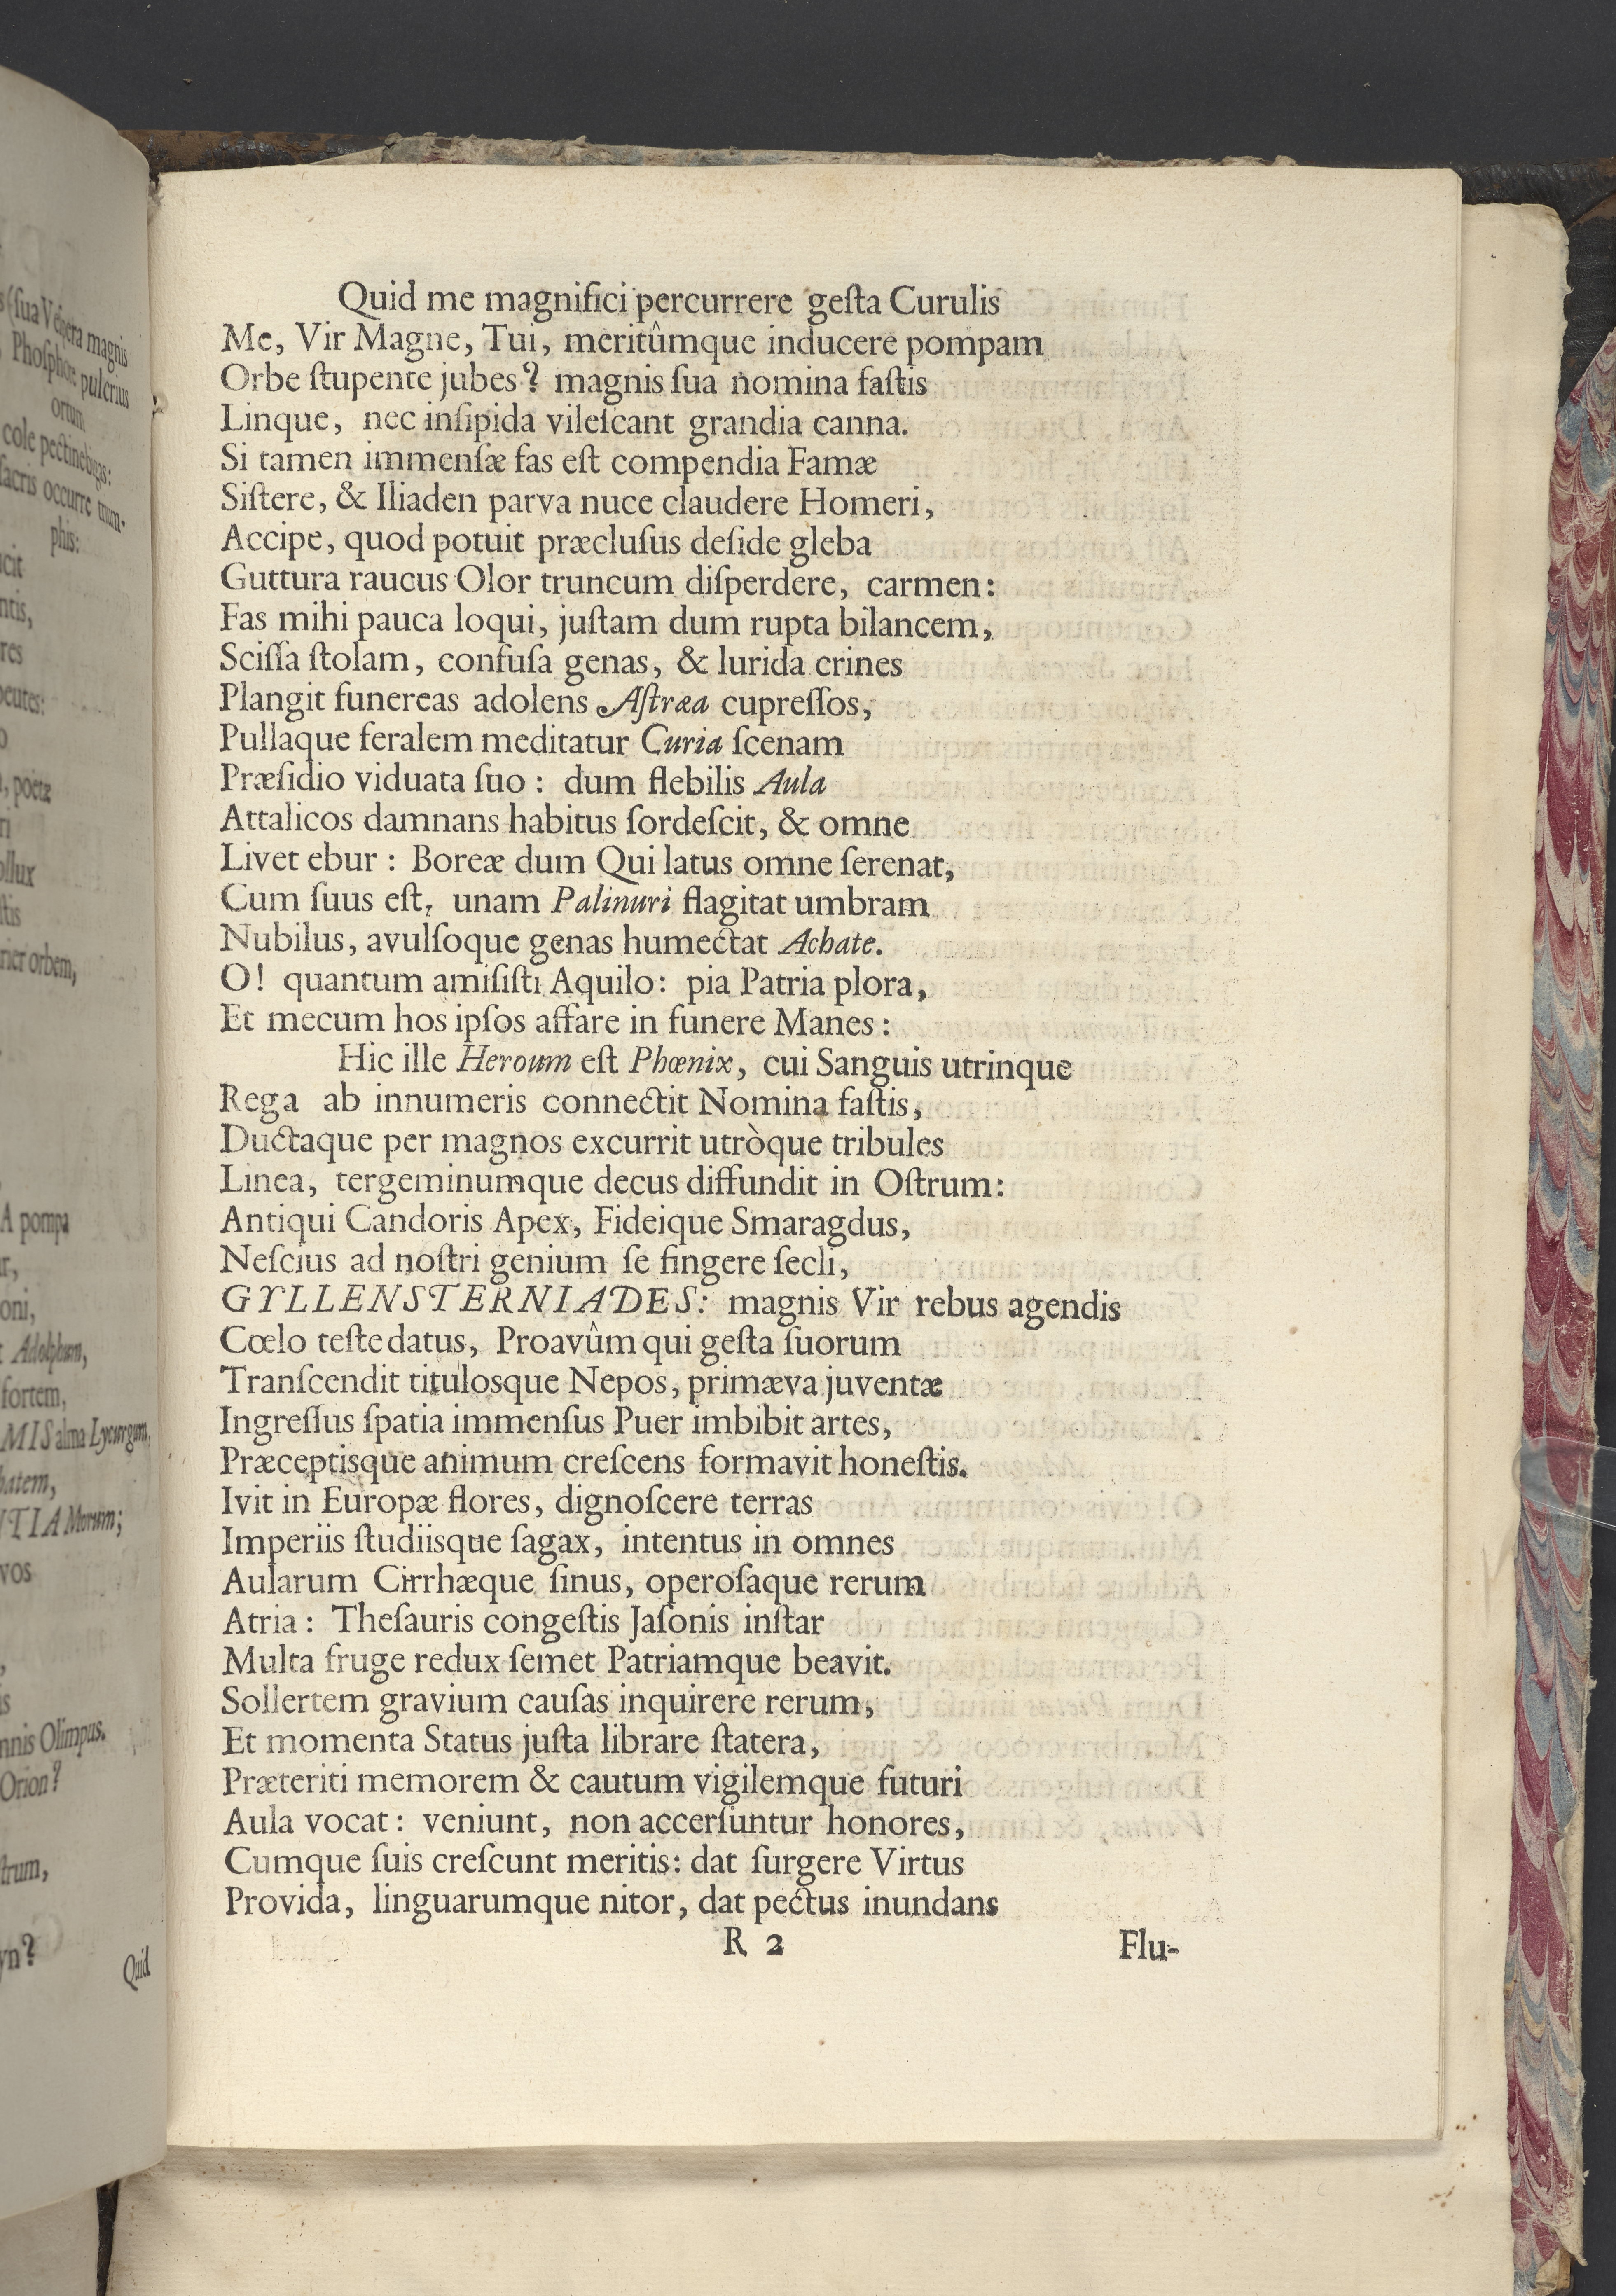 Quid me magnifici percurrere geſta Curulis
Me, Vir Magne, Tui, meritûmque inducere pompam
Orbe ſtupente jubes? magnis ſua nomina faſtis
Linque, nec inſipida vileſcant grandia canna.
Si tamen immenſæ fas eſt compendia Famæ
Siſtere, & Iliaden parva nuce claudere Homeri,
Accipe, quod potuit præcluſus deſide gleba
Guttura raucus Olor truncum diſperdere, carmen:
Fas mihi pauca loqui, juſtam dum rupta bilancem,
Sciſſa ſtolam, confuſa genas, & lurida crines
Plangit funereas adolens Aſtræa cupreſſos,
Pullaque feralem meditatur Curia ſcenam
Præſidio viduata ſuo: dum flebilis Aula
Attalicos damnans habitus ſordeſcit, & omne
Livet ebur: Boreæ dum Qui latus omne ſerenat,
Cum ſuus eſt, unam Palinuri flagitat umbram
Nubilus, avulſoque genas humectat Achate.
O! quantum amiſiſti Aquilo: pia Patria plora,
Et mecum hos ipſos affare in funere Manes:
Hic ille Heroum eſt Phœnix, cui Sanguis utrinque
Rega ab innumeris connectit Nomina faſtis,
Ductaque per magnos excurrit utròque tribules
Linea, tergeminumque decus diffundit in Oſtrum:
Antiqui Candoris Apex, Fideique Smaragdus,
Neſcius ad noſtri genium ſe fingere ſecli,
GYLLENSTERNIADES: magnis Vir rebus agendis
Cœlo teſte datus, Proavûm qui geſta ſuorum
Tranſcendit titulosque Nepos, primæva juventæ
Ingreſſus ſpatia immenſus Puer imbibit artes,
Præceptisque animum creſcens formavit honeſtis.
Ivit in Europæ flores, dignoſcere terras
Imperiis ſtudiisque ſagax, intentus in omnes
Aularum Cirrhæque ſinus, operoſaque rerum
Atria: Theſauris congeſtis Jaſonis inſtar
Multa fruge redux ſemet Patriamque beavit.
Sollertem gravium cauſas inquirere rerum,
Et momenta Status juſta librare ſtatera,
Præteriti memorem & cautum vigilemque futuri
Aula vocat: veniunt, non accerſuntur honores,
Cumque ſuis creſcunt meritis: dat ſurgere Virtus
Provida, linguarumque nitor, dat pectus inundans
R 2 Flu-